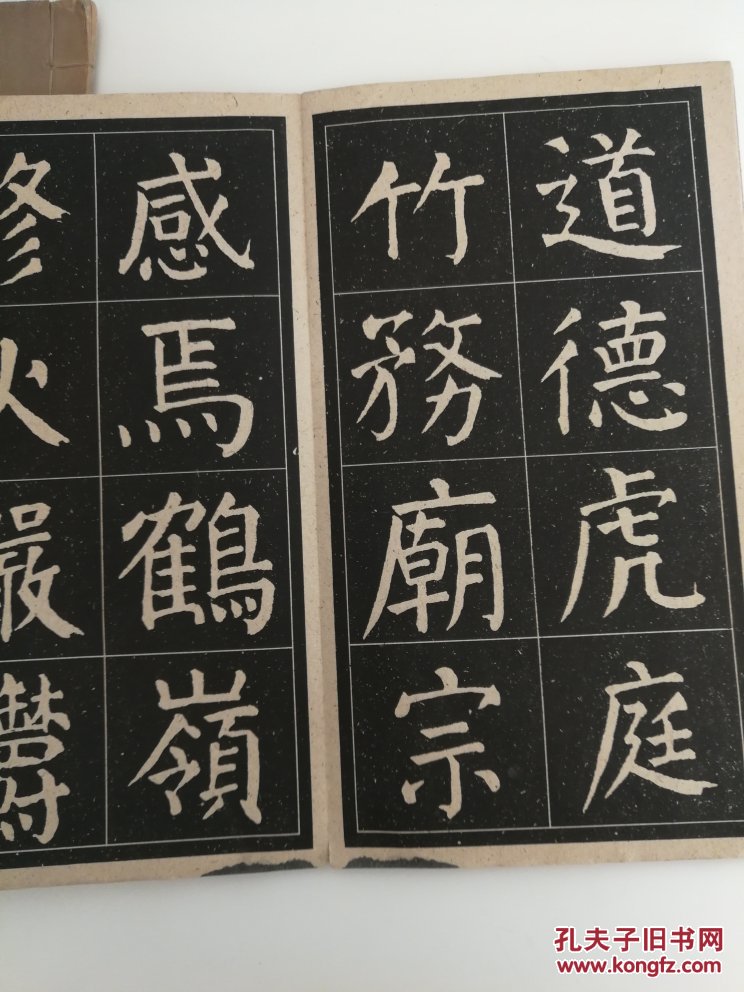 道德虎庭
竹務廟宗
感焉鶴嶺
孔夫子旧书网
kongfz.com